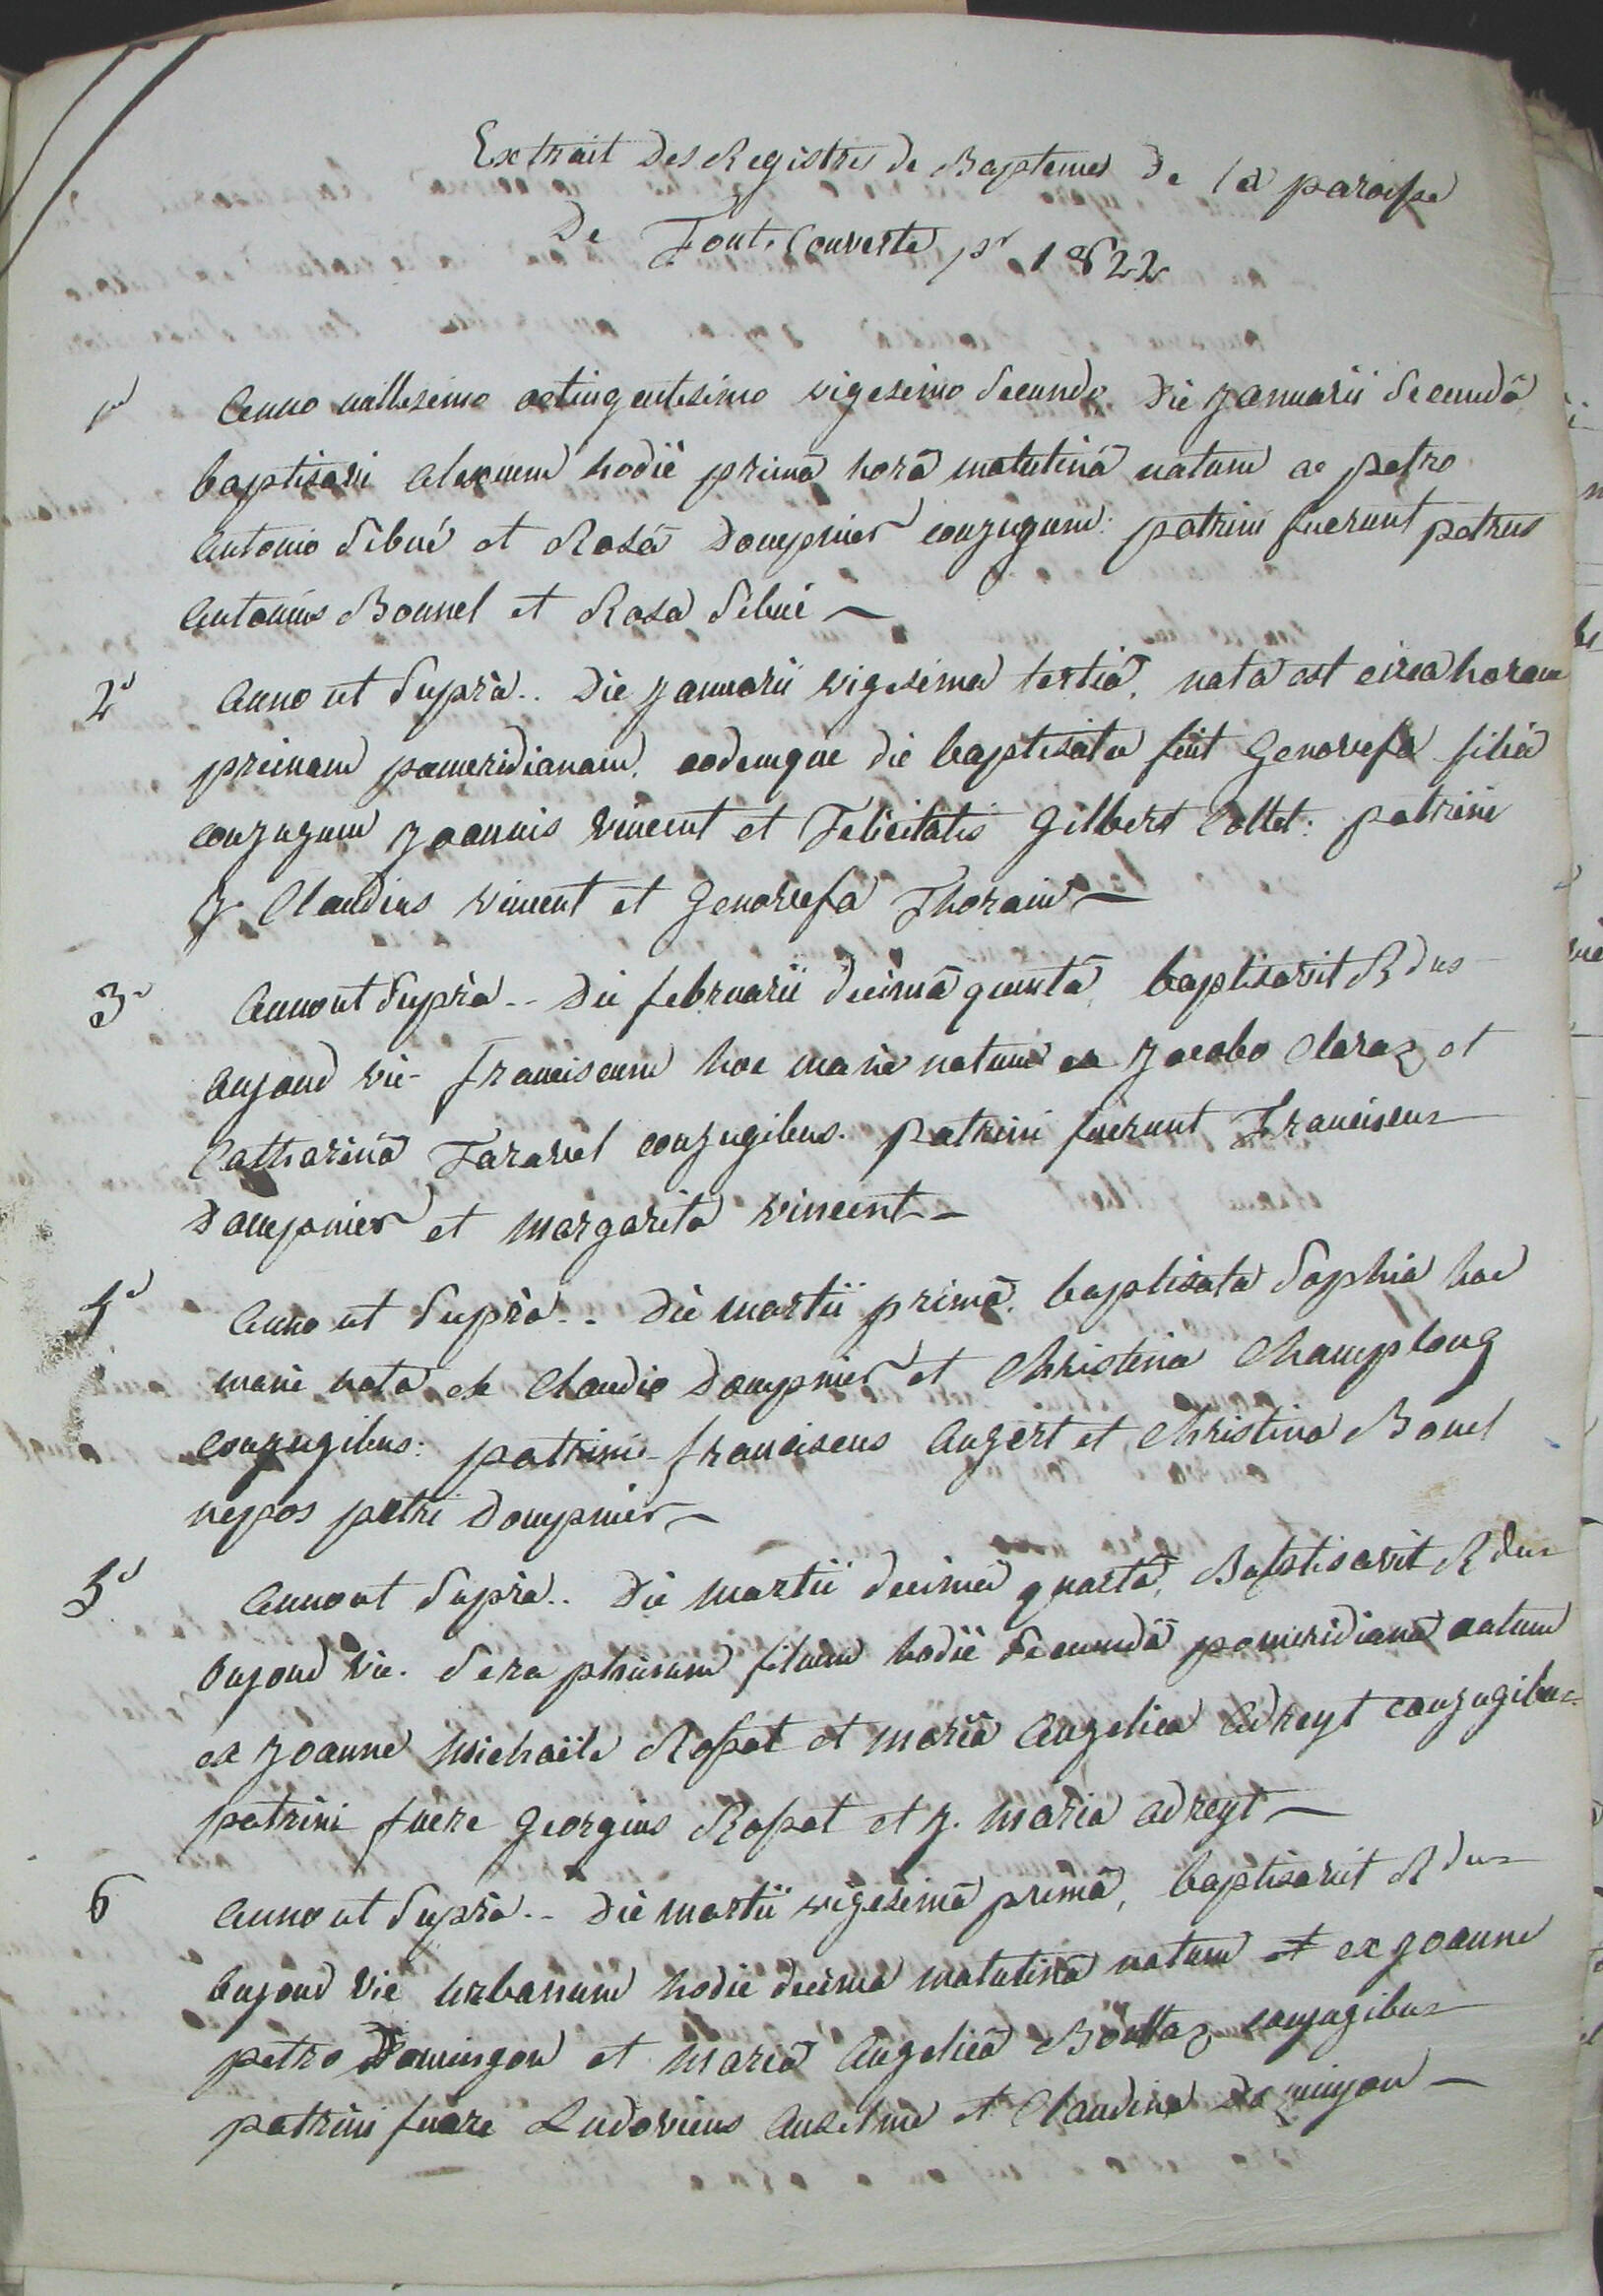 Extrait des Registres de Baptemes de la paroisse
De Fontcouverte pr 1822
1o Anno millesimo octingentesimo vigesimo secundo. Die januarii secundâ
baptisavi Alexium hodiè primâ horâ matutinâ natum ex petro
Antonio Sibué et Rosâ Dompnier conjugum: patrini fuerunt petrus
Antonius Bonnel et Rosa Sibué —
2o Anno ut suprà.. Die januarii vigesima tertiâ, nata est circa horam
primam pomeridianam, eodemque die baptisata fuit Genovefa filia
conjugum joannis vincent et Felicitatis Gilbert Collet: patrini
j. Claudius vincent et Genovefa Thorain —
3o Anno ut suprà -- Die februarii decimâ quintâ, baptisavit Rdus
Anjoud vic. franciscum hoc manè natum ex jacobo Claraz et
Catharinâ Taravel conjugibus. patrini fuerunt Franciscus
Dompnier et margarita vincent —
4o Anno ut suprà.. Die martii primâ. baptisata Sophia hoc
mane nata ex Claudio Dompnier et Christina Champlong
conjugibus: patrini franciscus Augert et Christina Bonel
nepos petri Dompnier —
5o Anno ut suprà.. Die martii decimâ quartâ, Babtisavit Rdus
Anjoud vic. Seraphinum filium hodiè secundâ pomeridianâ natum
ex joanne michaële Rossat et mariâ Angelica Adreyt conjugibus.
patrini fuere georgius Rossat et j. maria adreyt —
6 Anno ut suprà -- Die martii vigesimâ primâ, baptisavit Rdus
Anjoud vic urbanum hodie decima matutinâ natum et ex joanne
petro Domingon et mariâ Angelicâ Bouttaz conjugibus
patrini fuere Ludovicus Anselme et Claudina Domingon —